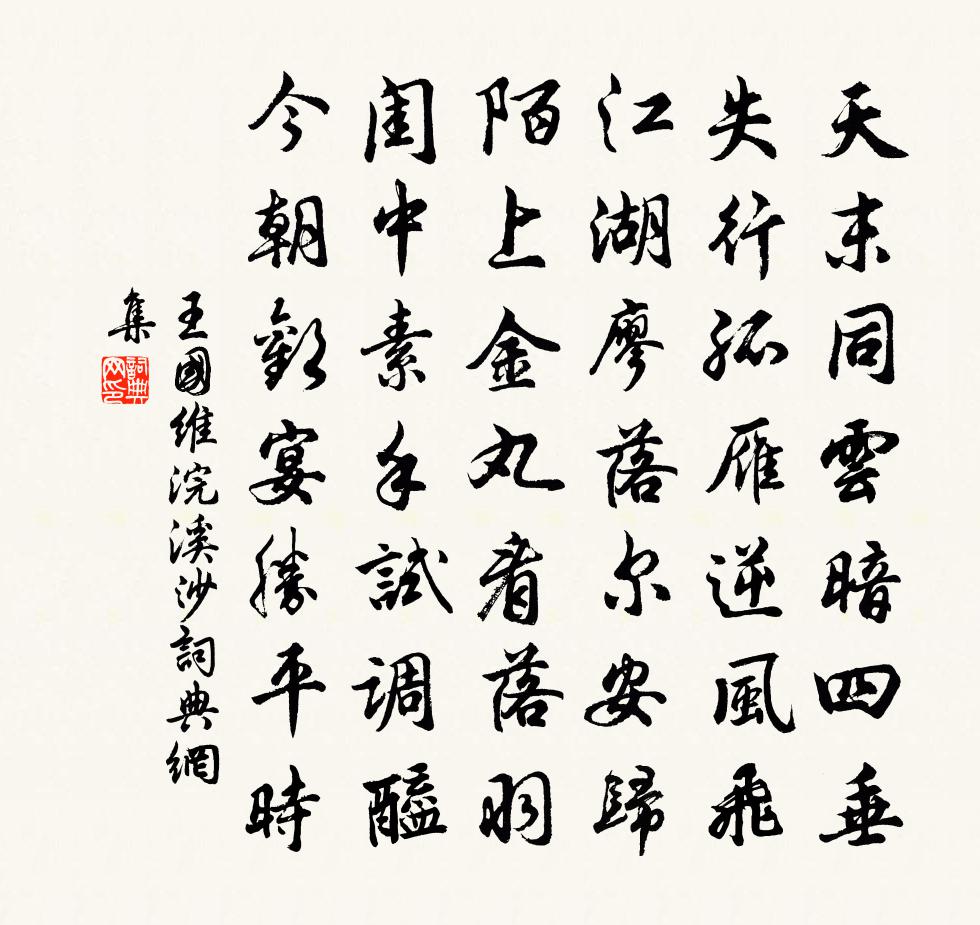 天末同雲暗四垂
失行孤雁逆風飛
江湖廖落尔安歸
陌上金丸看落羽
閨中素手試調醯
今朝歡宴勝平時
王國維浣溪沙詞典網
集
詞典网印